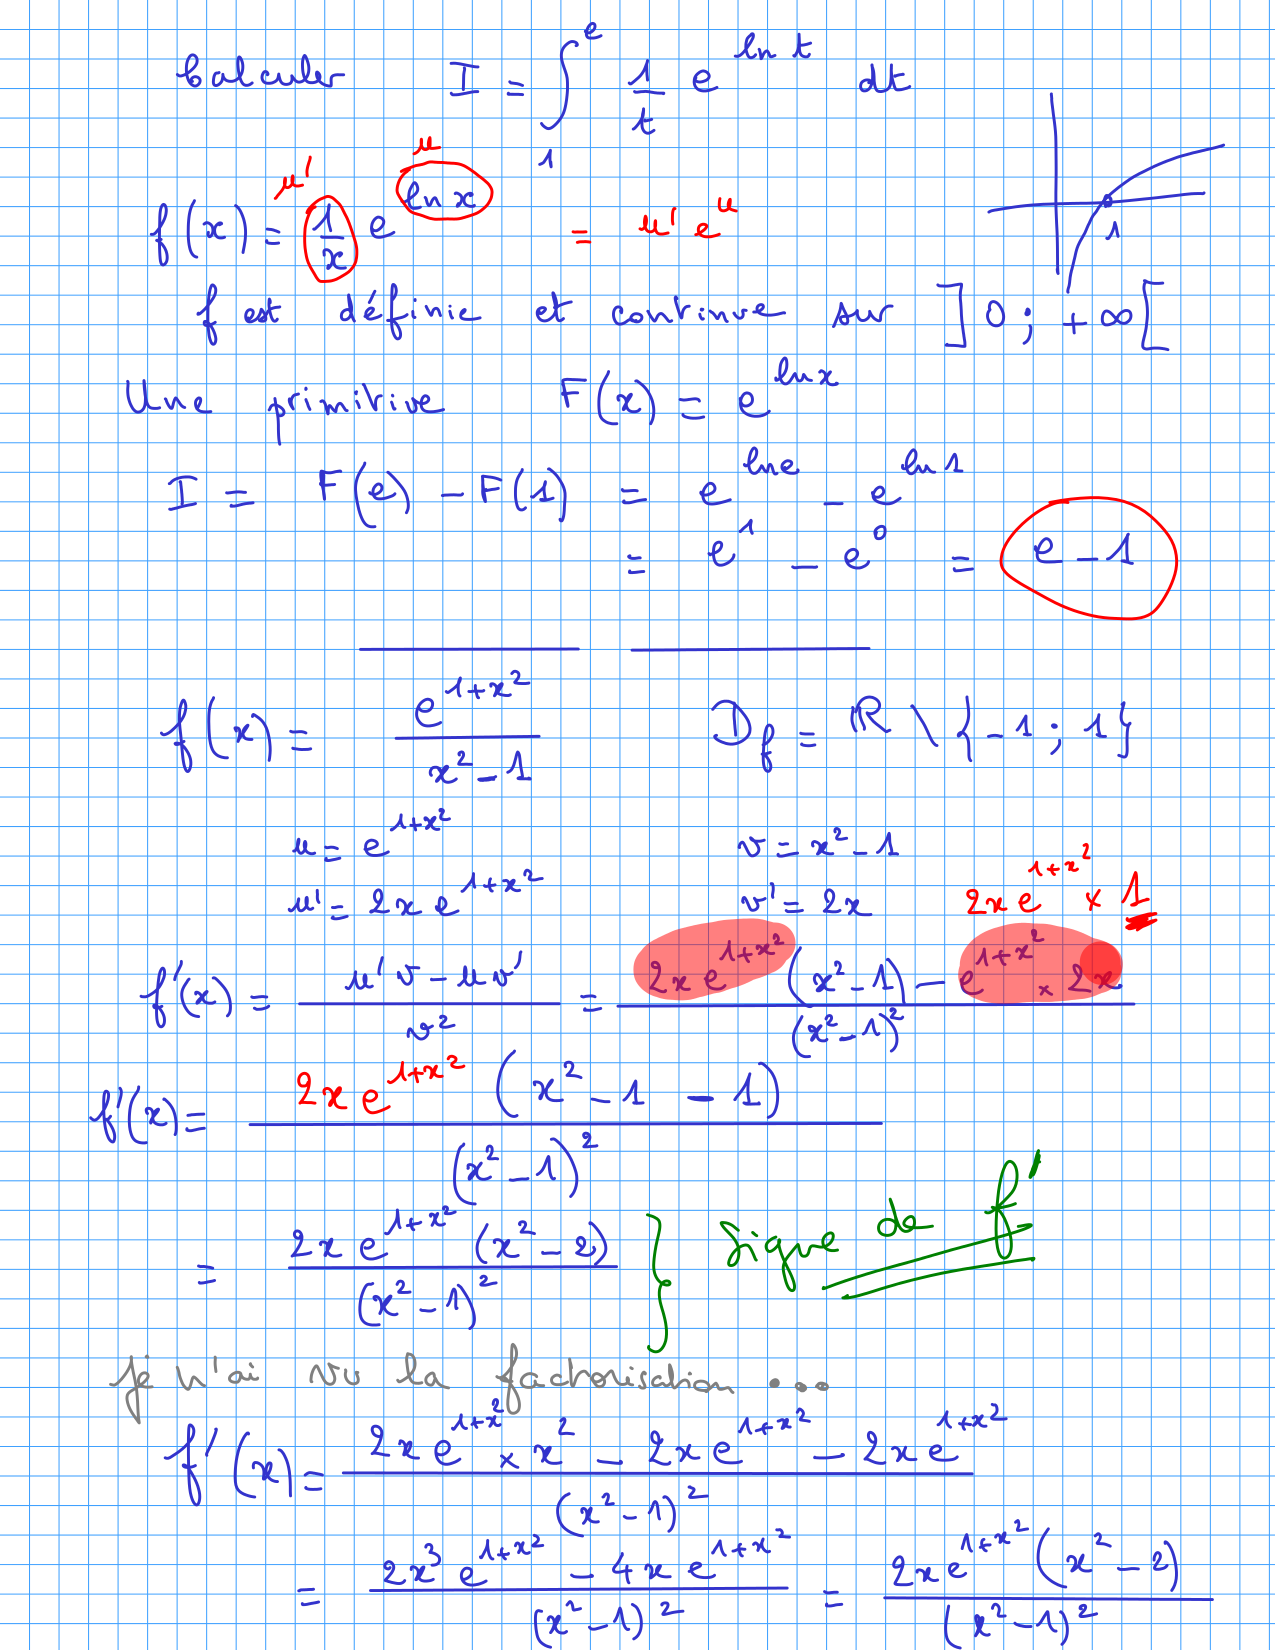 Calculer I = ∫₁ᵉ 1/t e^(ln t) dt
u' u
f(x) = 1/x e^(ln x) = u' e^u
1
f est définie et continue sur ]0 ; +∞[
Une primitive F(x) = e^(ln x)
I = F(e) - F(1) = e^(ln e) - e^(ln 1)
= e^1 - e^0 = e - 1
f(x) = e^(1+x²) / (x² - 1) D_f = ℝ \ {-1 ; 1}
u = e^(1+x²) v = x² - 1
u' = 2x e^(1+x²) v' = 2x 2x e^(1+x²) × 1
f'(x) = (u'v - uv') / v² = (2x e^(1+x²) (x² - 1) - e^(1+x²) × 2x) / (x² - 1)²
f'(x) = 2x e^(1+x²) (x² - 1 - 1) / (x² - 1)²
= 2x e^(1+x²) (x² - 2) / (x² - 1)² } Signe de f'
je n'ai vu la factorisation ...
f'(x) = (2x e^(1+x²) × x² - 2x e^(1+x²) - 2x e^(1+x²)) / (x² - 1)²
= (2x³ e^(1+x²) - 4x e^(1+x²)) / (x² - 1)² = 2x e^(1+x²) (x² - 2) / (x² - 1)²